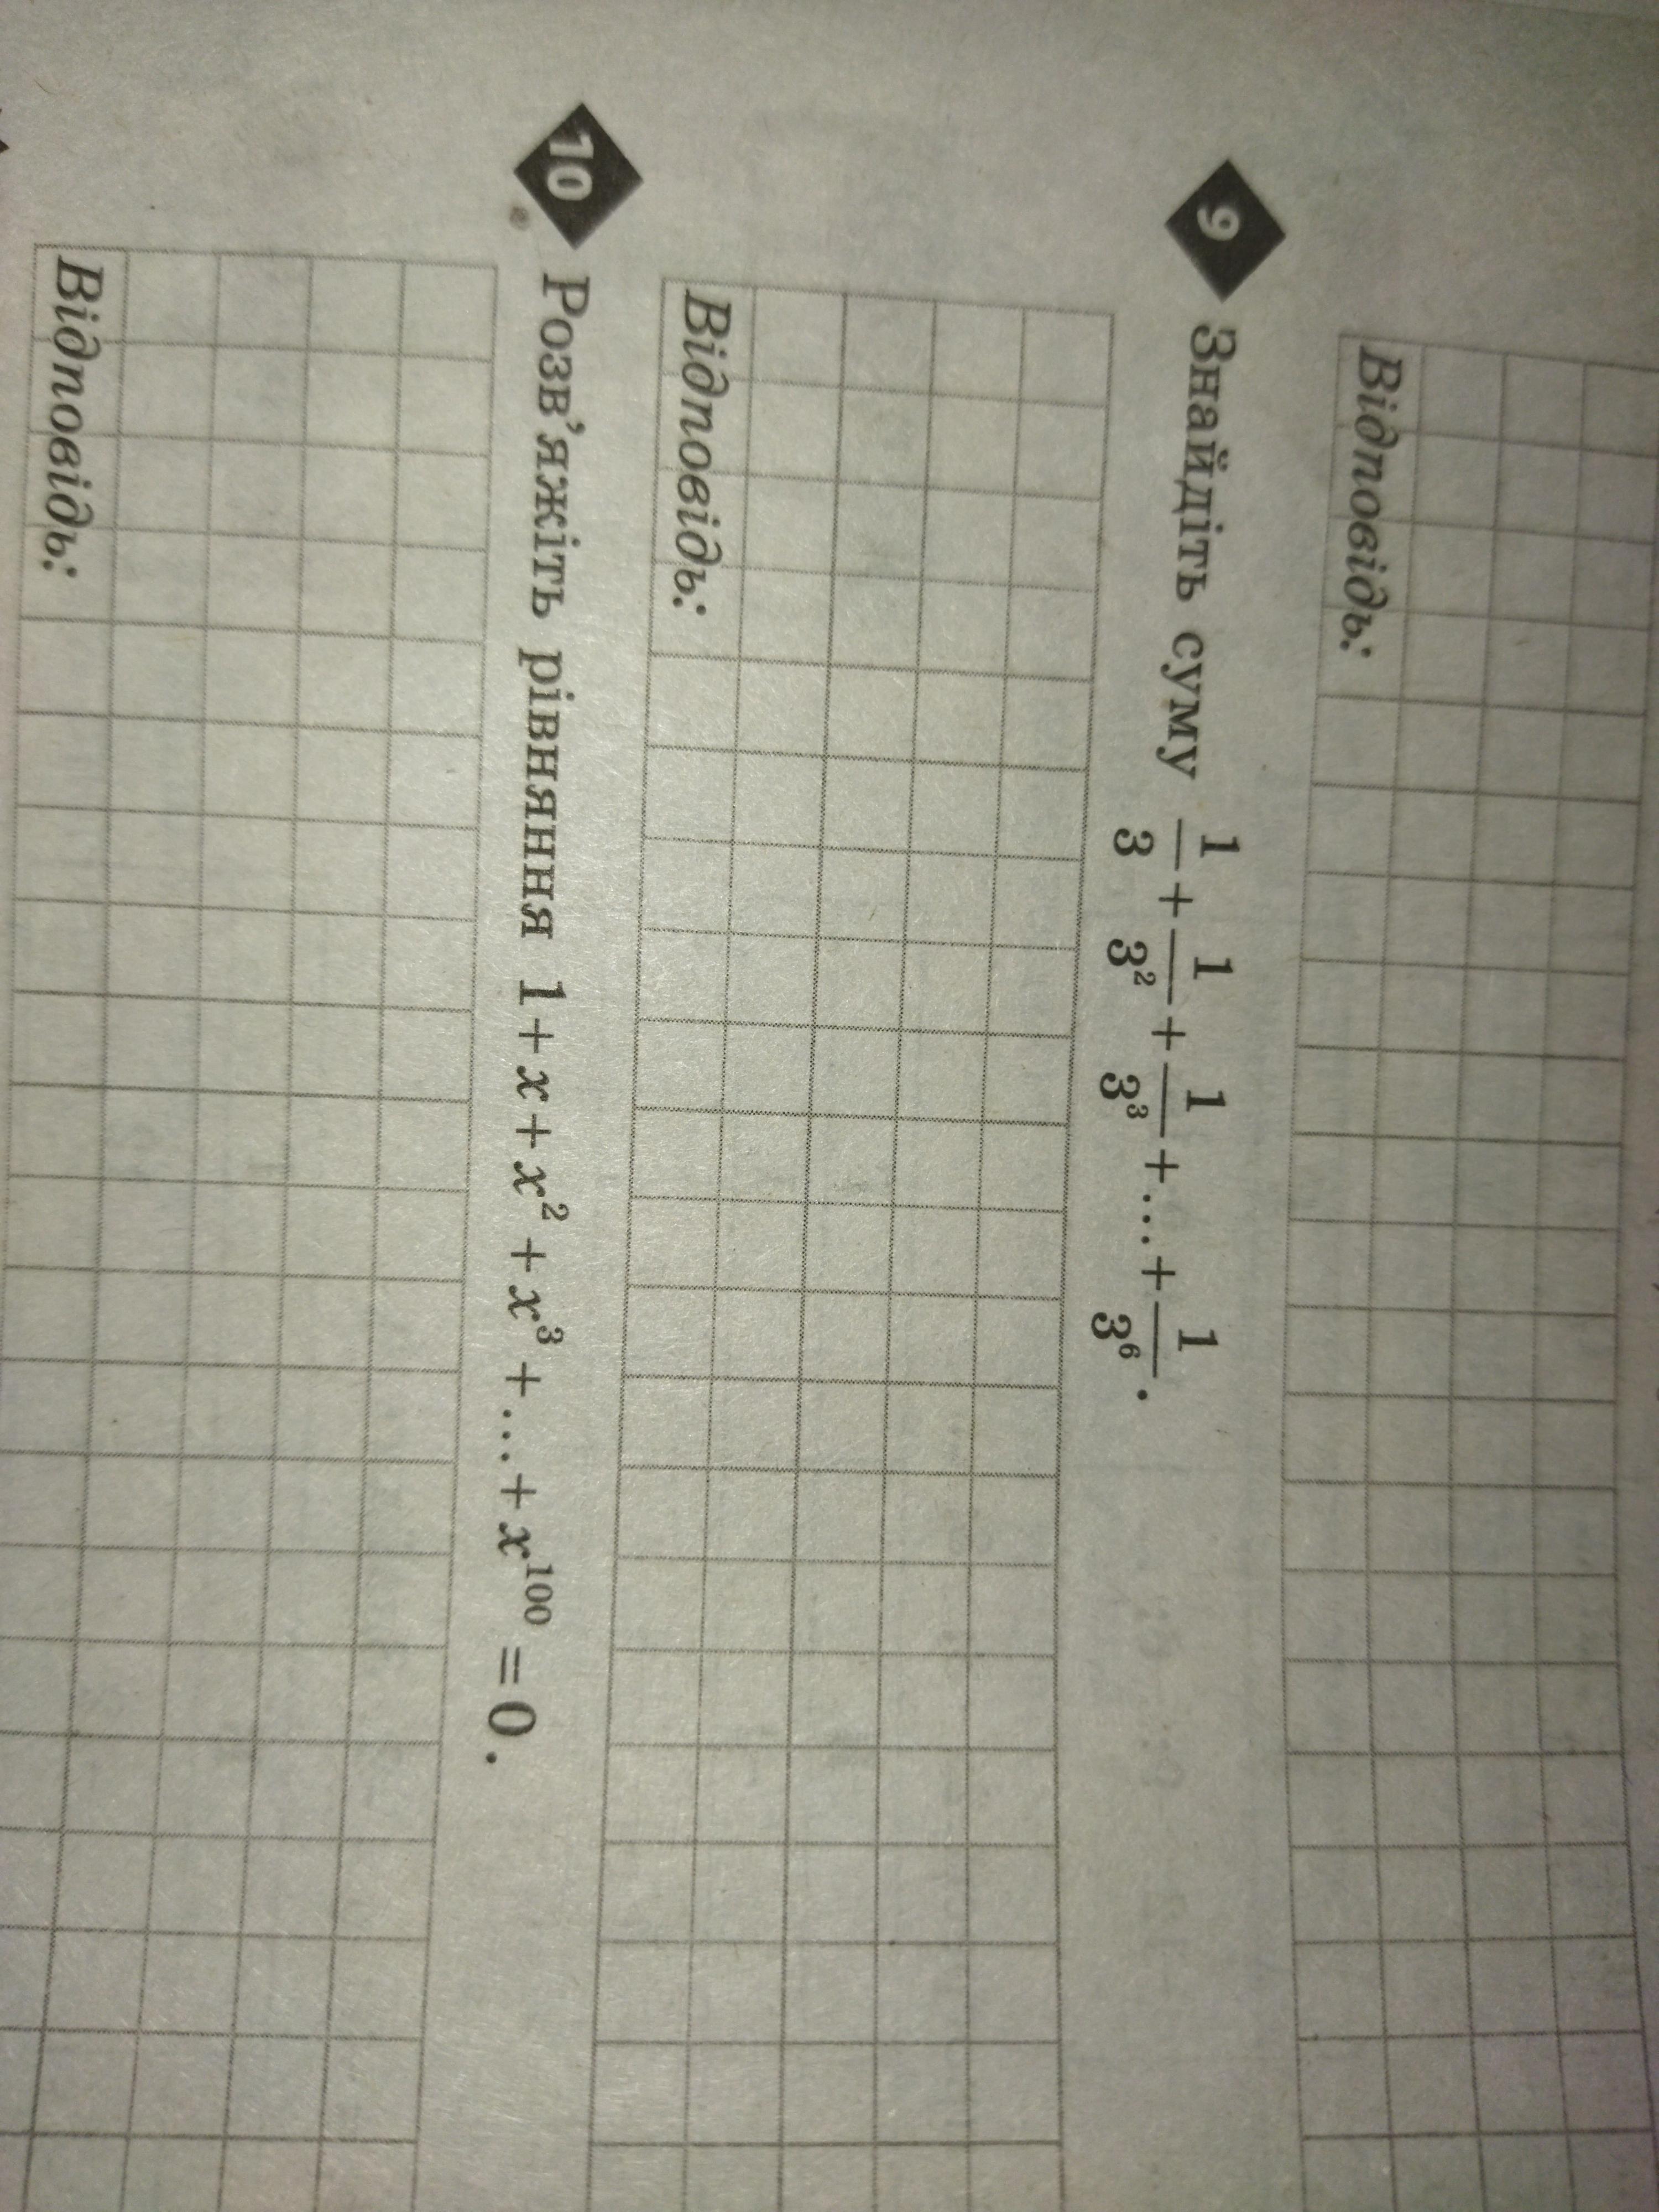 Відповідь:
9 Знайдіть суму 1/3 + 1/3² + 1/3³ + ... + 1/3⁶.
Відповідь:
10 Розв'яжіть рівняння 1 + x + x² + x³ + ... + x¹⁰⁰ = 0.
Відповідь: